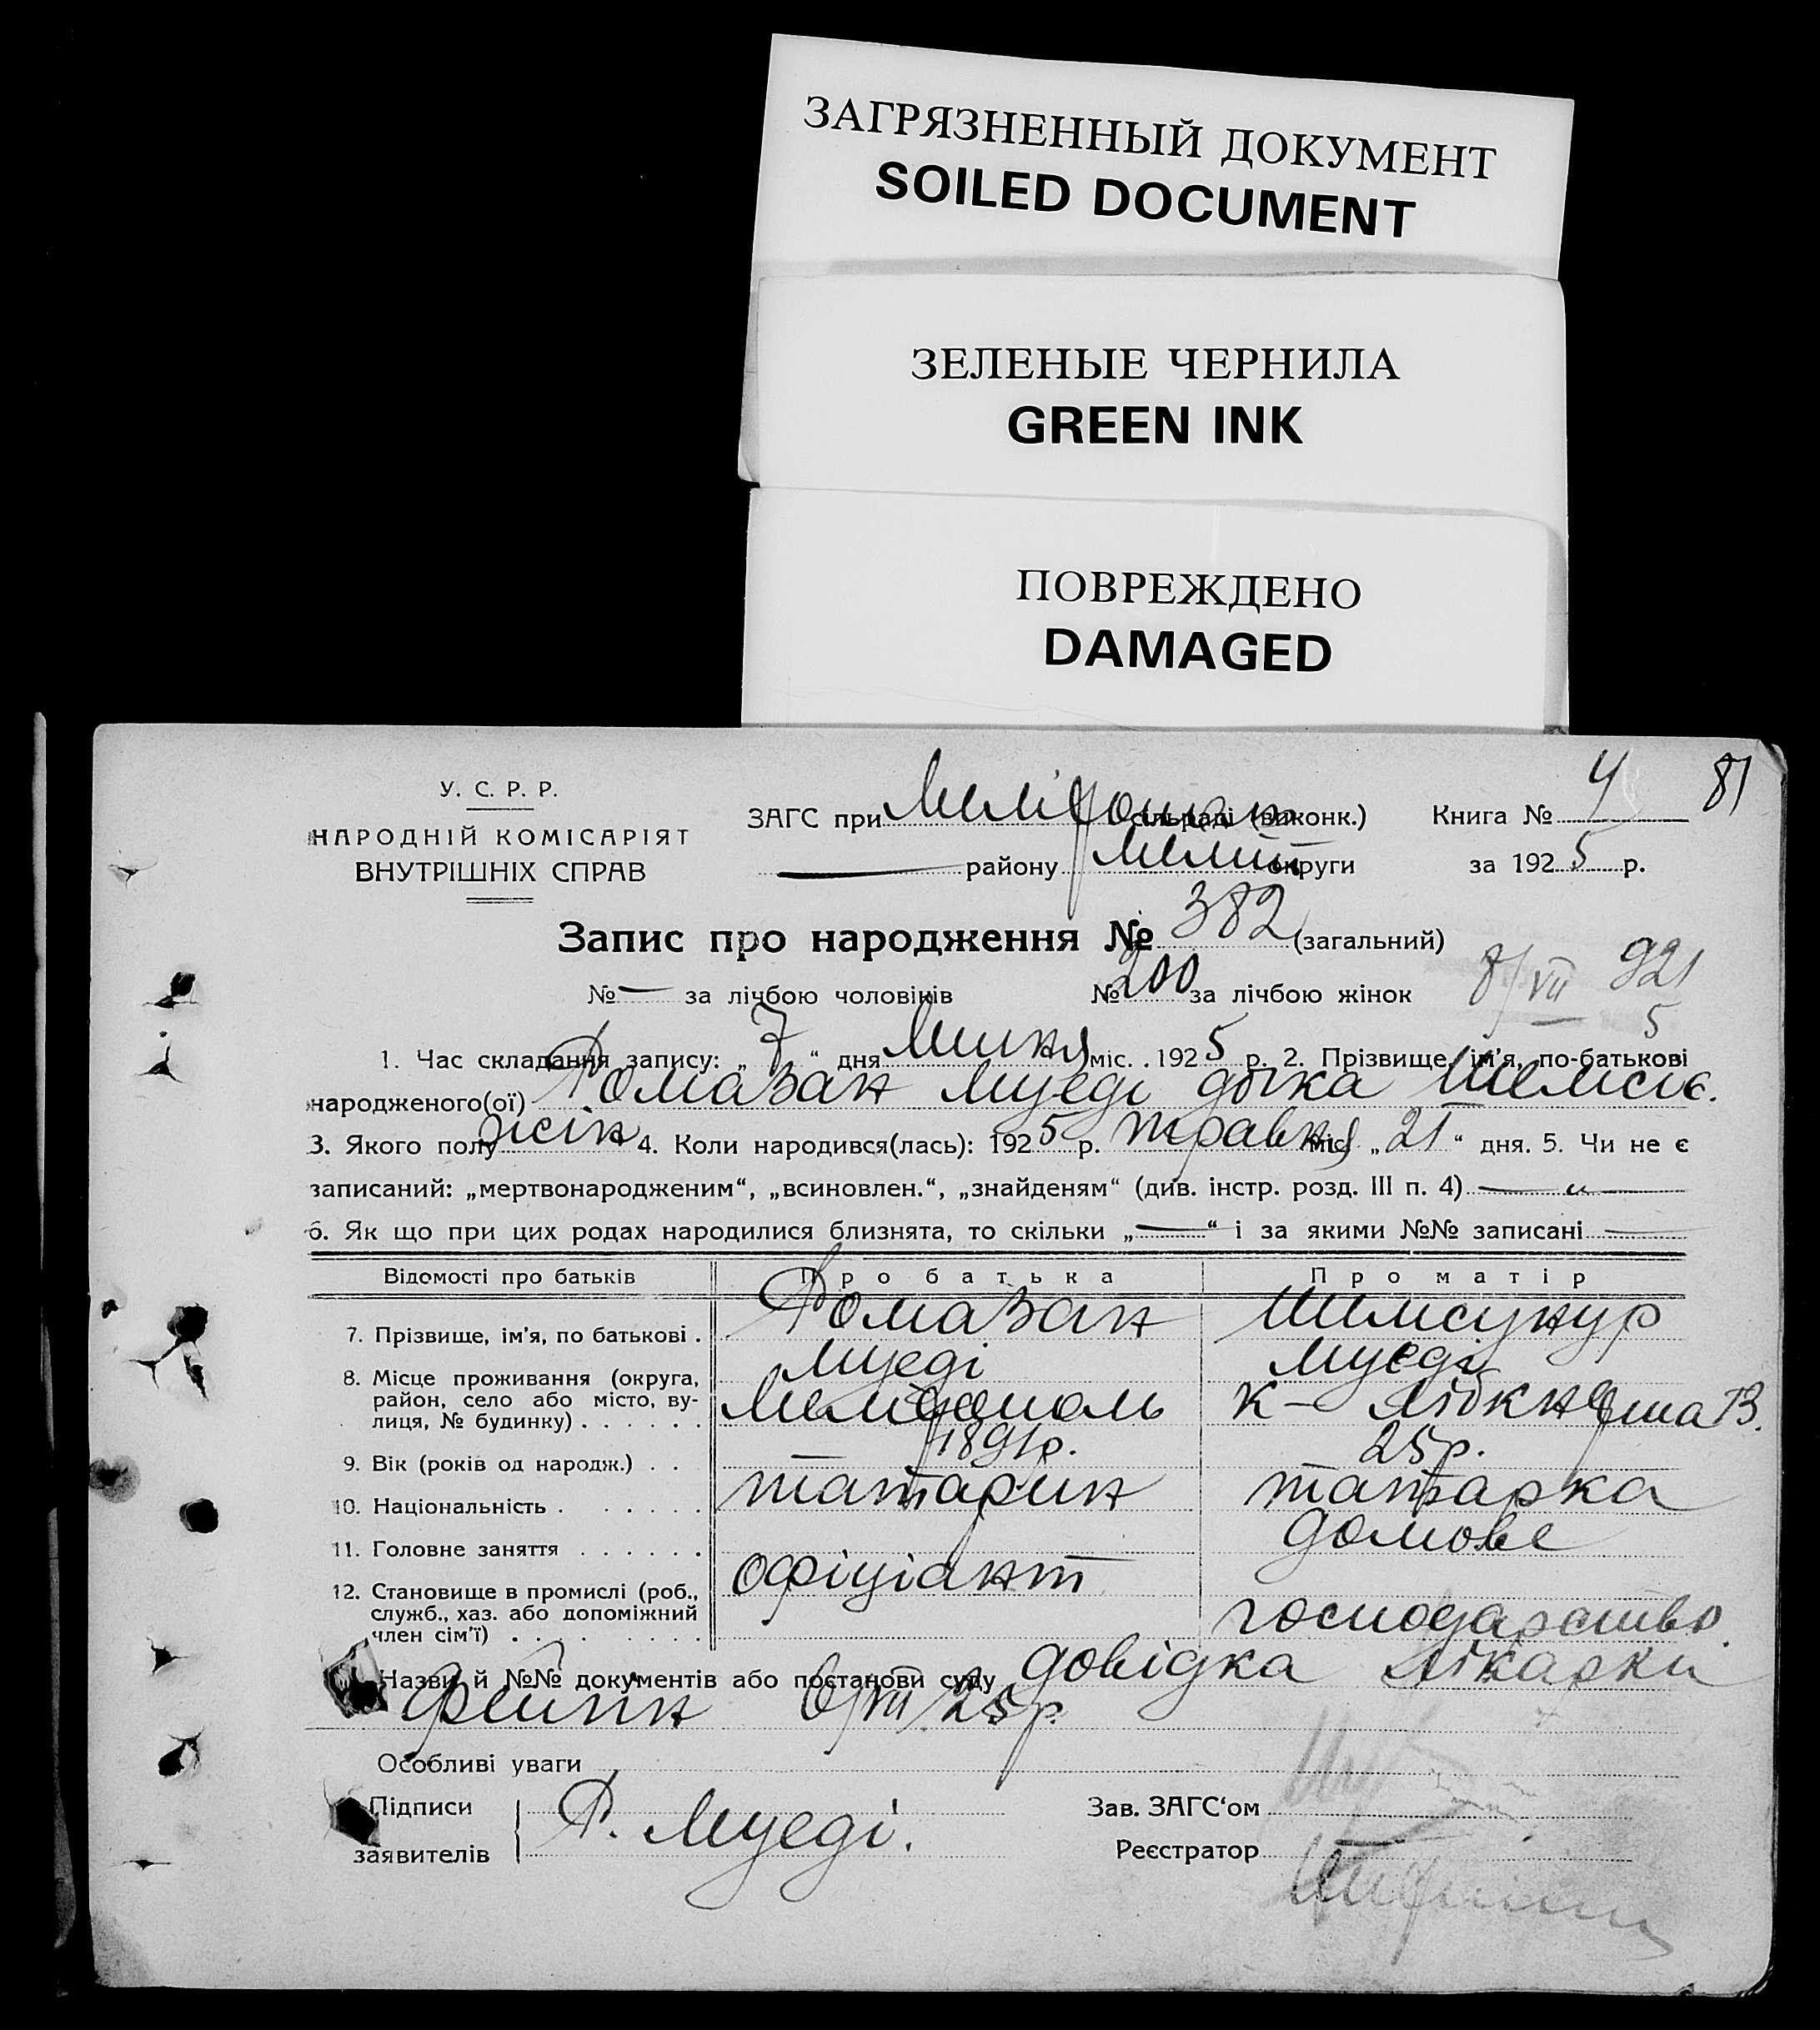 ЗАГРЯЗНЕННЫЙ ДОКУМЕНТ
SOILED DOCUMENT
ЗЕЛЕНЫЕ ЧЕРНИЛА
GREEN INK
ПОВРЕЖДЕНО
DAMAGED
81
У. С. Р. Р.
НАРОДНІЙ КОМІСАРІЯТ
ВНУТРІШНІХ СПРАВ
ЗАГС при сільраді (виконк.) Книга № 4
району Меліт округи за 1925 р.
Запис про народження № 382 (загальний)
№ — за лічбою чоловіків № 200 за лічбою жінок
8/VII 921
5
1. Час складання запису: „ 7 “ дня Липня міс. 1925 р. 2. Прізвище, ім'я, по-батькові
народженого(ої) Ромазан Муеді дочка Шемсіє.
3. Якого полу жін 4. Коли народився(лась): 1925 р. травня міс. „ 21 “ дня. 5. Чи не є
записаний: „мертвонародженим“, „всиновлен.“, „знайденям“ (див. інстр. розд. III п. 4) — „ —
6. Як що при цих родах народилися близнята, то скільки „ — “ і за якими №№ записані —
Відомості про батьків Про батька Про матір
7. Прізвище, ім'я, по батькові . Ромазан Муеді Шемсунур Муєді
8. Місце проживання (округа, район, село або місто, вулиця, № будинку) . . . . . . Мелітополь К— Лібкнехта 13.
9. Вік (років од народж.) . . 1891р. 25р.
10. Національність . . . . . . татарин татарка
11. Головне заняття . . . . . . домове
12. Становище в промислі (роб., служб., хаз. або допоміжний член сім'ї) . . . . . . . офіціант господарство.
Назви й №№ документів або постанови суду довідка лікарки
6/VII 25р.
Особливі уваги
Підписи
заявителів Р. Муеді.
Зав. ЗАГС'ом
Реєстратор